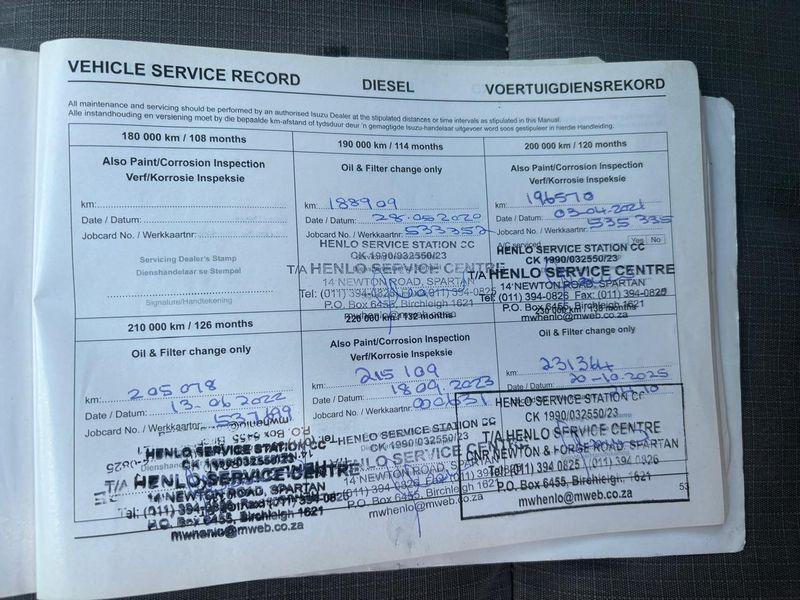 VEHICLE SERVICE RECORD DIESEL VOERTUIGDIENSREKORD
All maintenance and servicing should be performed by an authorised Isuzu Dealer at the stipulated distances or time intervals as stipulated in this Manual.
Alle instandhouding en versiening moet by die bepaalde km-afstand of tydsduur deur 'n gemagtigde Isuzu-handelaar uitgevoer word soos gestipuleer in hierdie Handleiding.
180 000 km / 108 months
Also Paint/Corrosion Inspection
Verf/Korrosie Inspeksie
km:
Date / Datum:
Jobcard No. / Werkkaartnr:
Servicing Dealer's Stamp
Dienshandelaar se Stempel
Signature/Handtekening
190 000 km / 114 months
Oil & Filter change only
km: 188909
Date / Datum: 28.05.2020
Jobcard No. / Werkkaartnr: 533352
HENLO SERVICE STATION CC
CK 1990/032550/23
T/A HENLO SERVICE CENTRE
14 NEWTON ROAD, SPARTAN
Tel: (011) 394-0825 Fax: (011) 394-0825
P.O. Box 6455, Birchleigh 1621
mwhenlo@mweb.co.za
200 000 km / 120 months
Also Paint/Corrosion Inspection
Verf/Korrosie Inspeksie
km: 196570
Date / Datum: 03-04.2021
Jobcard No. / Werkkaartnr: 535335
Yes No
HENLO SERVICE STATION CC
CK 1990/032550/23
T/A HENLO SERVICE CENTRE
14 NEWTON ROAD, SPARTAN
Tel: (011) 394-0826 Fax: (011) 394-0825
P.O. Box 6455, Birchleigh 1621
mwhenlo@mweb.co.za
210 000 km / 126 months
Oil & Filter change only
km: 205078
Date / Datum: 13.06.2022
Jobcard No. / Werkkaartnr:
HENLO SERVICE STATION CC
CK 1990/032550/23
T/A HENLO SERVICE CENTRE
14 NEWTON ROAD, SPARTAN
Tel: (011)
P.O. Box 6455, Birchleigh 1621
mwhenlo@mweb.co.za
220 000 km / 132 months
Also Paint/Corrosion Inspection
Verf/Korrosie Inspeksie
km: 215109
Date / Datum: 18.09.2023
Jobcard No. / Werkkaartnr:
HENLO SERVICE STATION CC
CK 1990/032550/23
HENLO SERVICE
14 NEWTON ROAD, SPARTAN
P.O. Box 6455, Birchleigh 1621
mwhenlo@mweb.co.za
230 000 km / 138 months
Oil & Filter change only
km: 231364
Date / Datum: 20-10-2025
HENLO SERVICE STATION CC
CK 1990/032550/23
T/A HENLO SERVICE CENTRE
CNR NEWTON & FORGE ROAD SPARTAN
Tel: (011) 394 0825 / (011) 394 0826
P.O. Box 6455, Birchleigh, 1621
mwhenlo@mweb.co.za
53